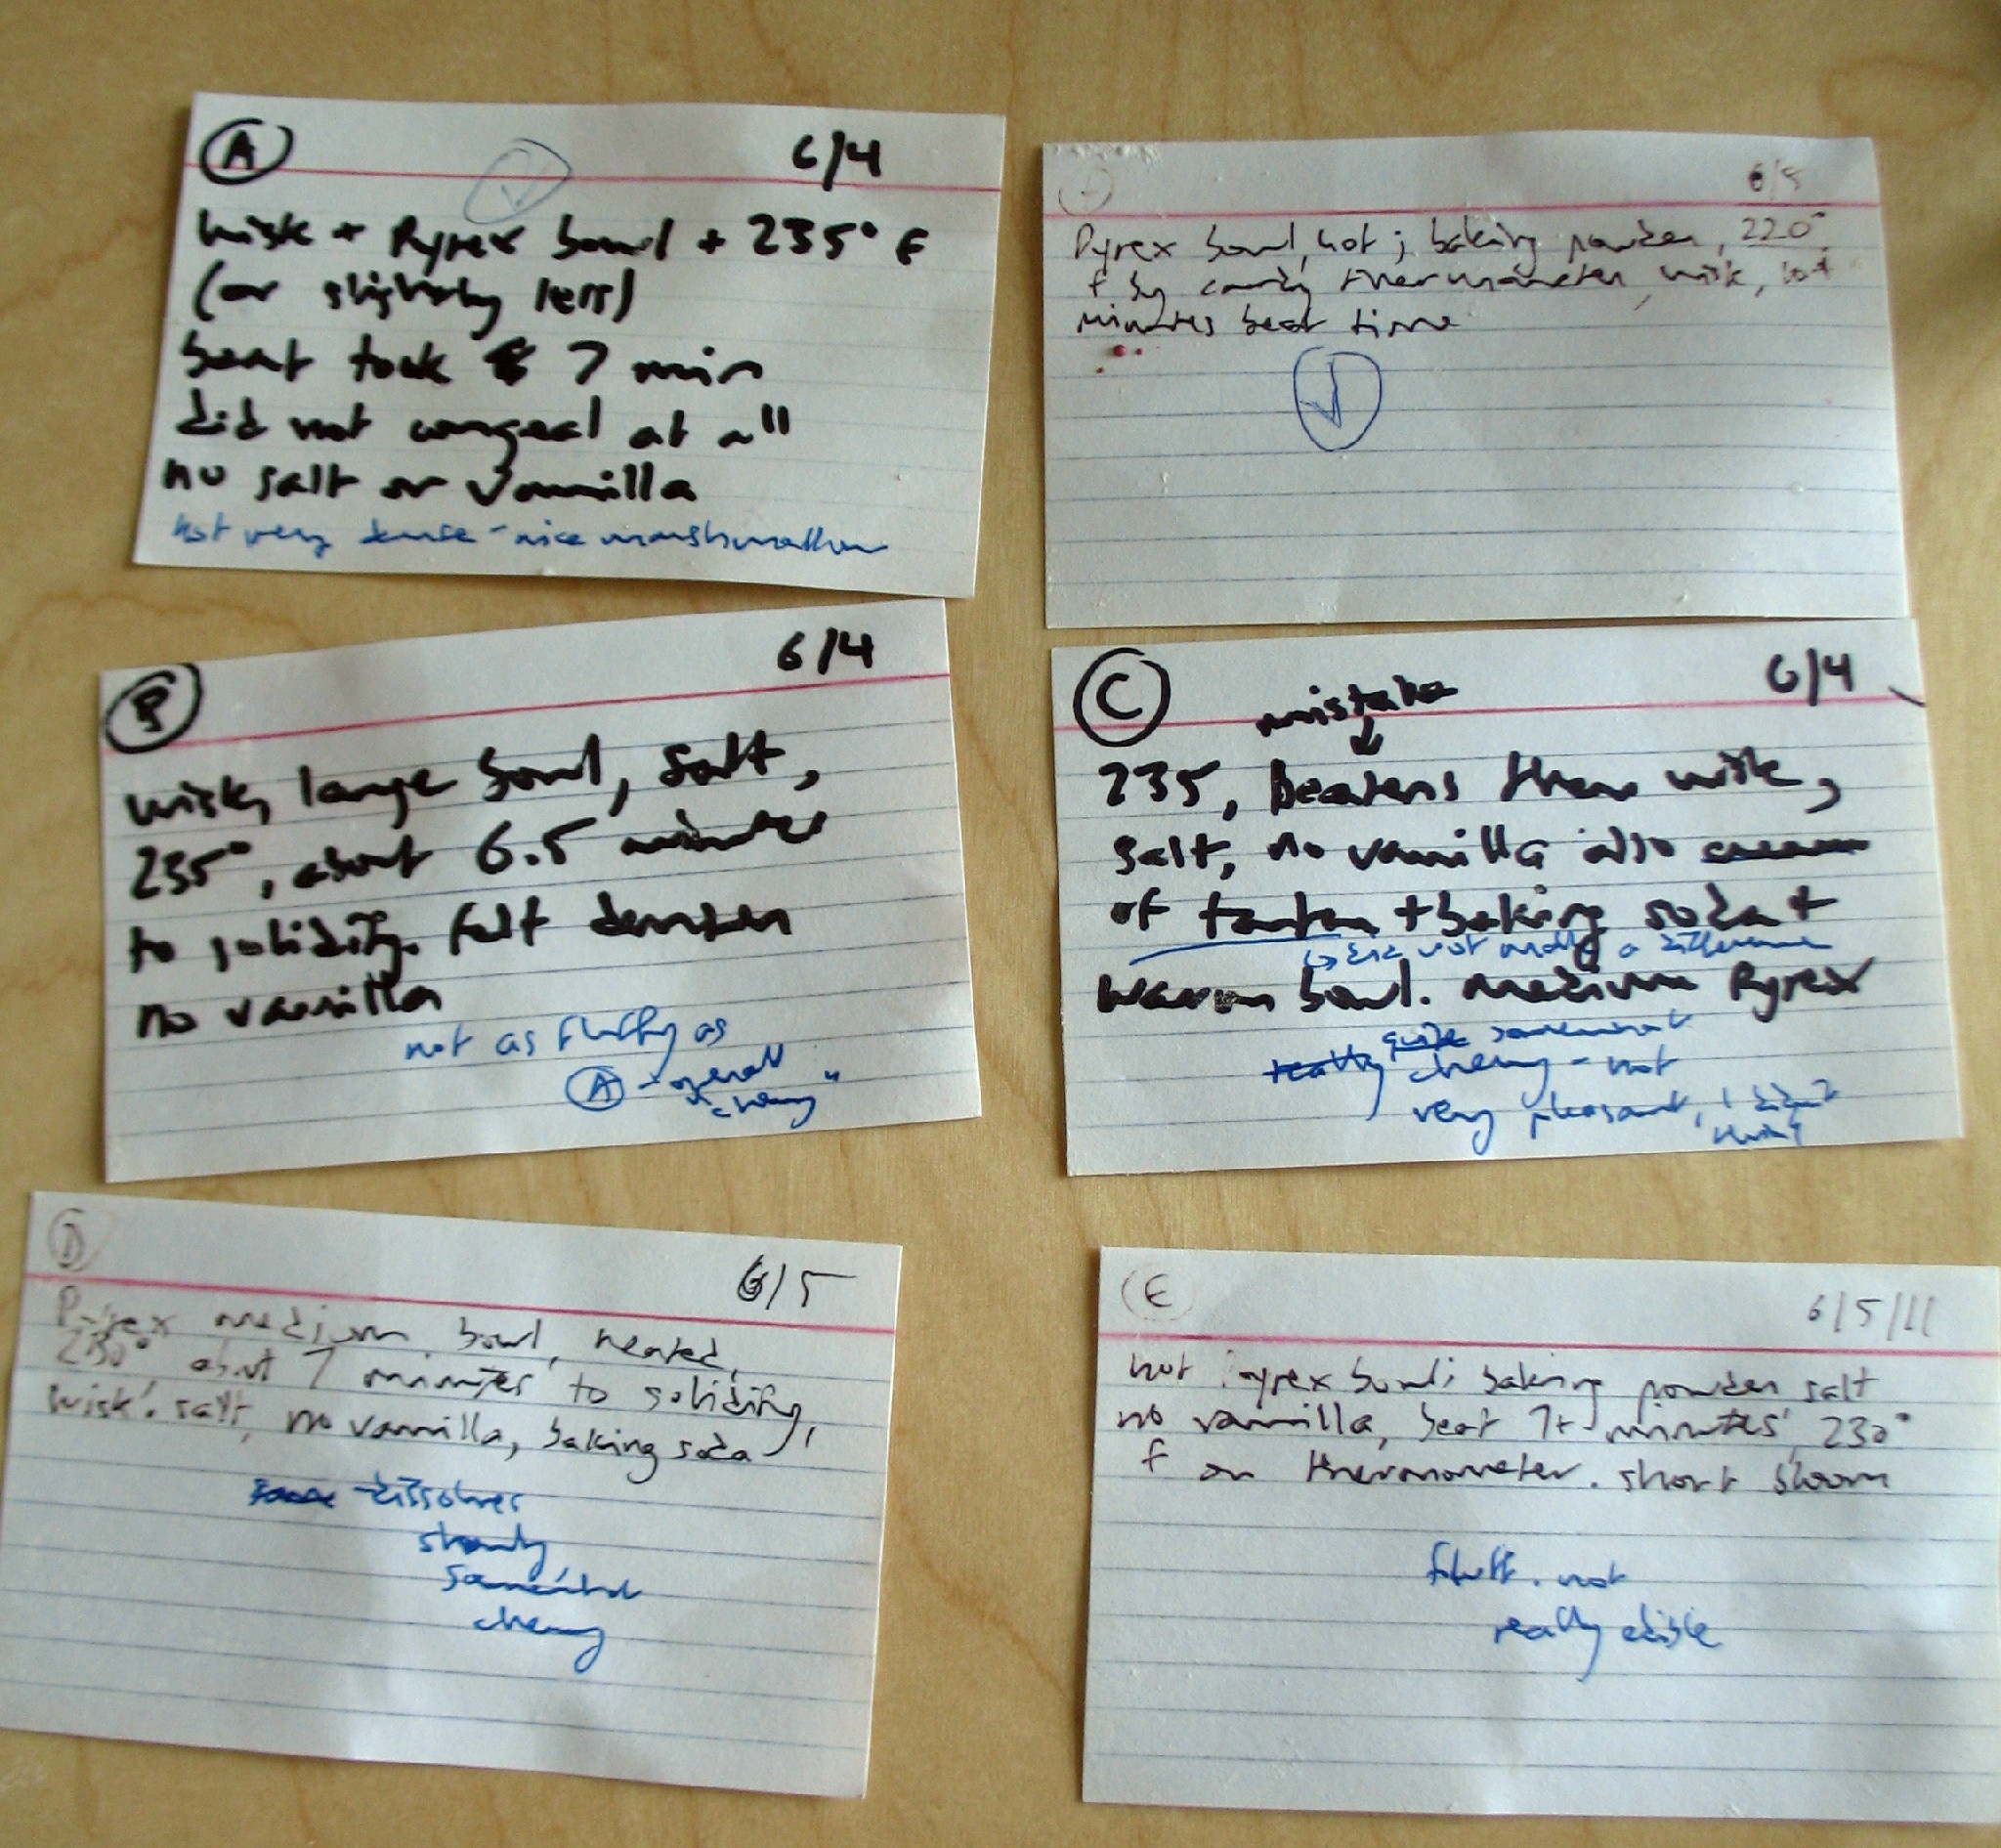 A 6/4
wisk + Pyrex bowl + 235° F
(or slightly less)
beat took 7 min
did not congeal at all
no salt or vanilla
not very dense - nice marshmallow
6/5
Pyrex bowl, hot; baking powder, 220°
F by candy thermometer, wisk,
minutes beat time
B 6/4
wisk, large bowl, salt,
235°, about 6.5 minutes
to solidify. felt denser
no vanilla
not as fluffy as
A - overall
"chewy"
C 6/4
mistake
235, Beaters then wisk,
salt, no vanilla also cream
of tartar + baking soda +
did not really a difference
warm bowl. medium Pyrex
quite somewhat
really chewy - not
very pleasant, I didn't
D 6/5
Pyrex medium bowl, heated,
230° about 7 minutes to solidify,
wisk. salt, no vanilla, baking soda
dissolves
slowly
somewhat
chewy
E 6/5/11
hot pyrex bowl; baking powder salt
no vanilla, beat 7+ minutes, 230°
F on thermometer. short
fluff. not
really edible